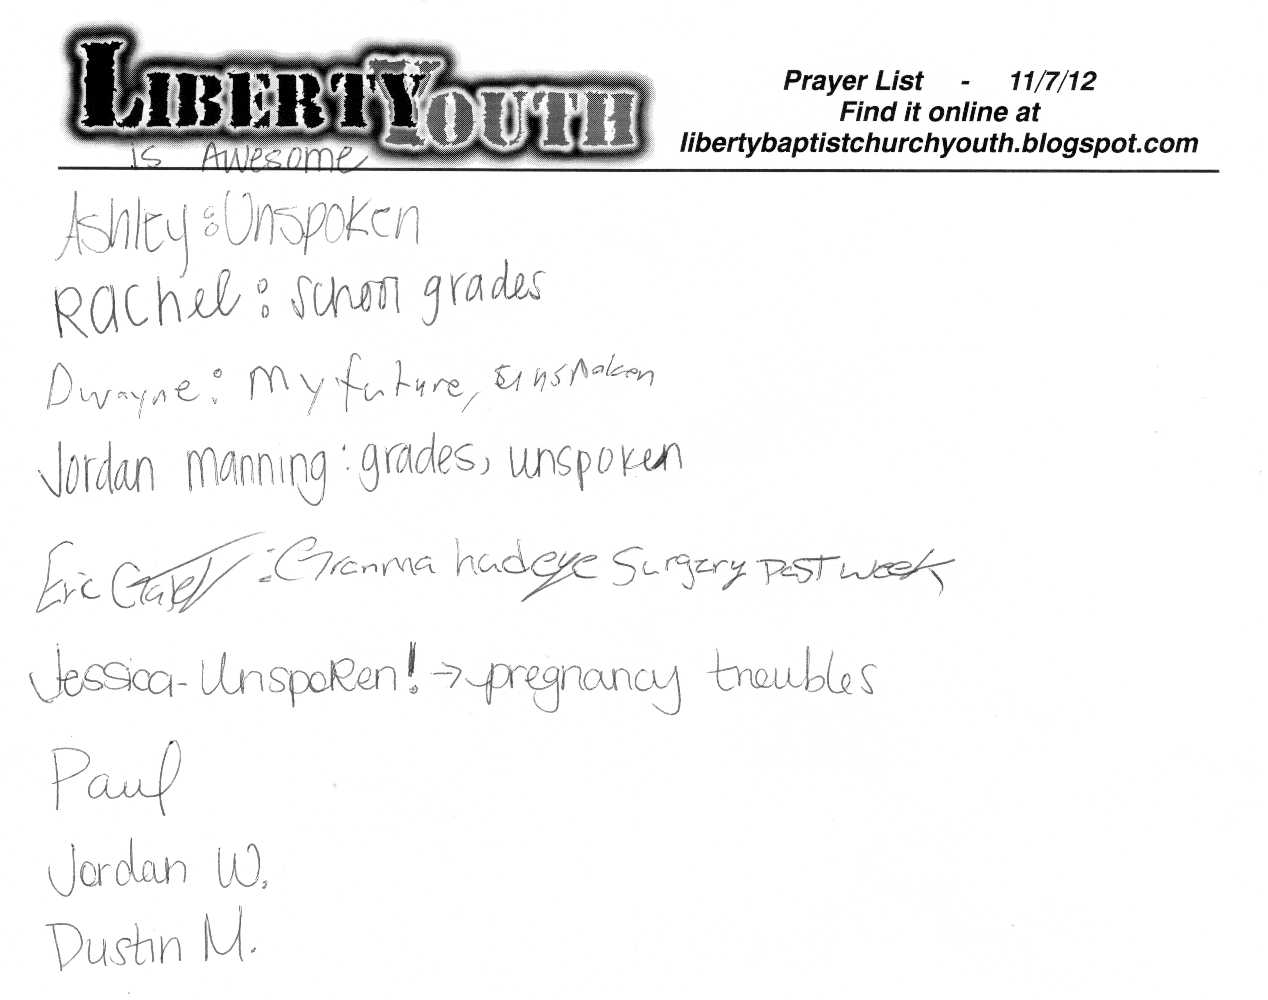 LIBERTY YOUTH
is Awesome
Prayer List - 11/7/12
Find it online at
libertybaptistchurchyouth.blogspot.com
Ashley: Unspoken
Rachel: school grades
Dwayne: My future, unspoken
Jordan Manning: grades, unspoken
Eric : Granma had eye Surgery past week
Jessica - Unspoken! → pregnancy troubles
Paul
Jordan W.
Dustin M.